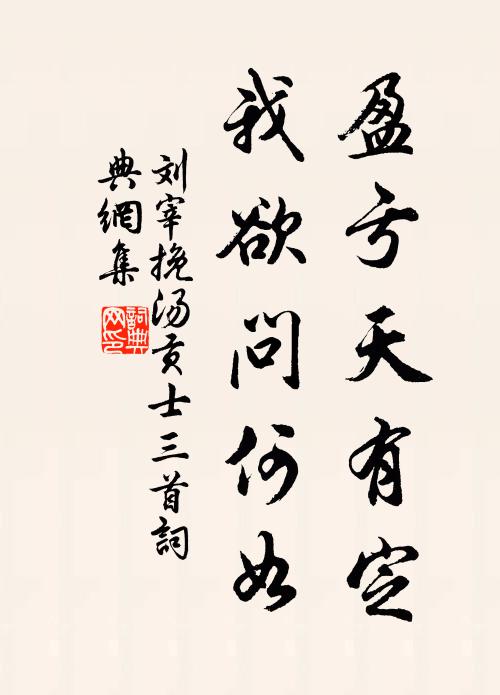 盈亏天有定
我欲问何如
刘宰挽汤贡士三首詞
典網集
詞典网印